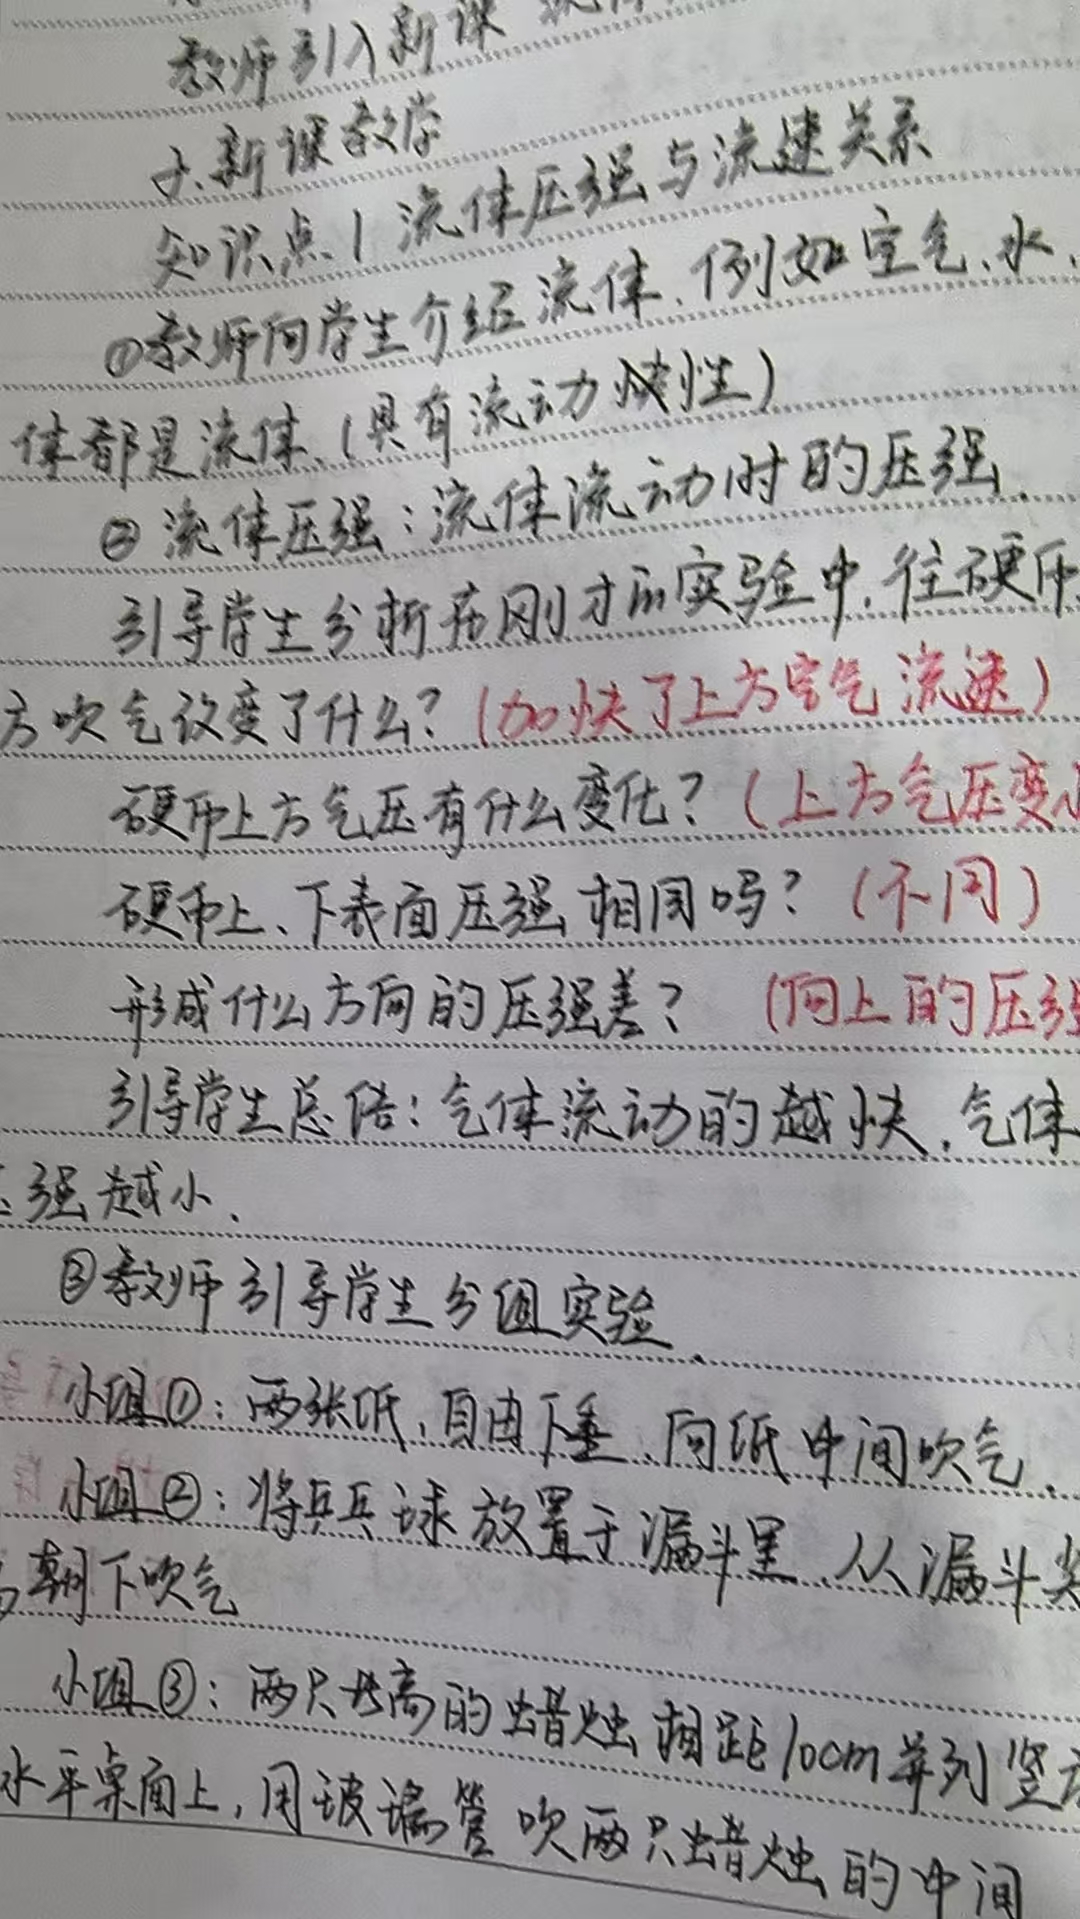 教师引入新课
六、新课教学
知识点1 流体压强与流速关系
①教师向学生介绍流体、例如空气、水、
体都是流体、(具有流动性)
② 流体压强：流体流动时的压强.
引导学生分析在刚才的实验中，往硬币
方吹气改变了什么？(加快了上方空气流速)
硬币上方气压有什么变化？(上方气压变小
硬币上、下表面压强相同吗？(不同)
形成什么方向的压强差？(向上的压强
引导学生总结：气体流动的越快，气体
压强越小.
③教师引导学生分组实验.
小组①：两张纸，自由下垂，向纸中间吹气.
小组②：将乒乓球放置于漏斗里，从漏斗尖
朝下吹气
小组③：两只长高的蜡烛相距10cm并列竖
水平桌面上，用玻璃管吹两只蜡烛的中间